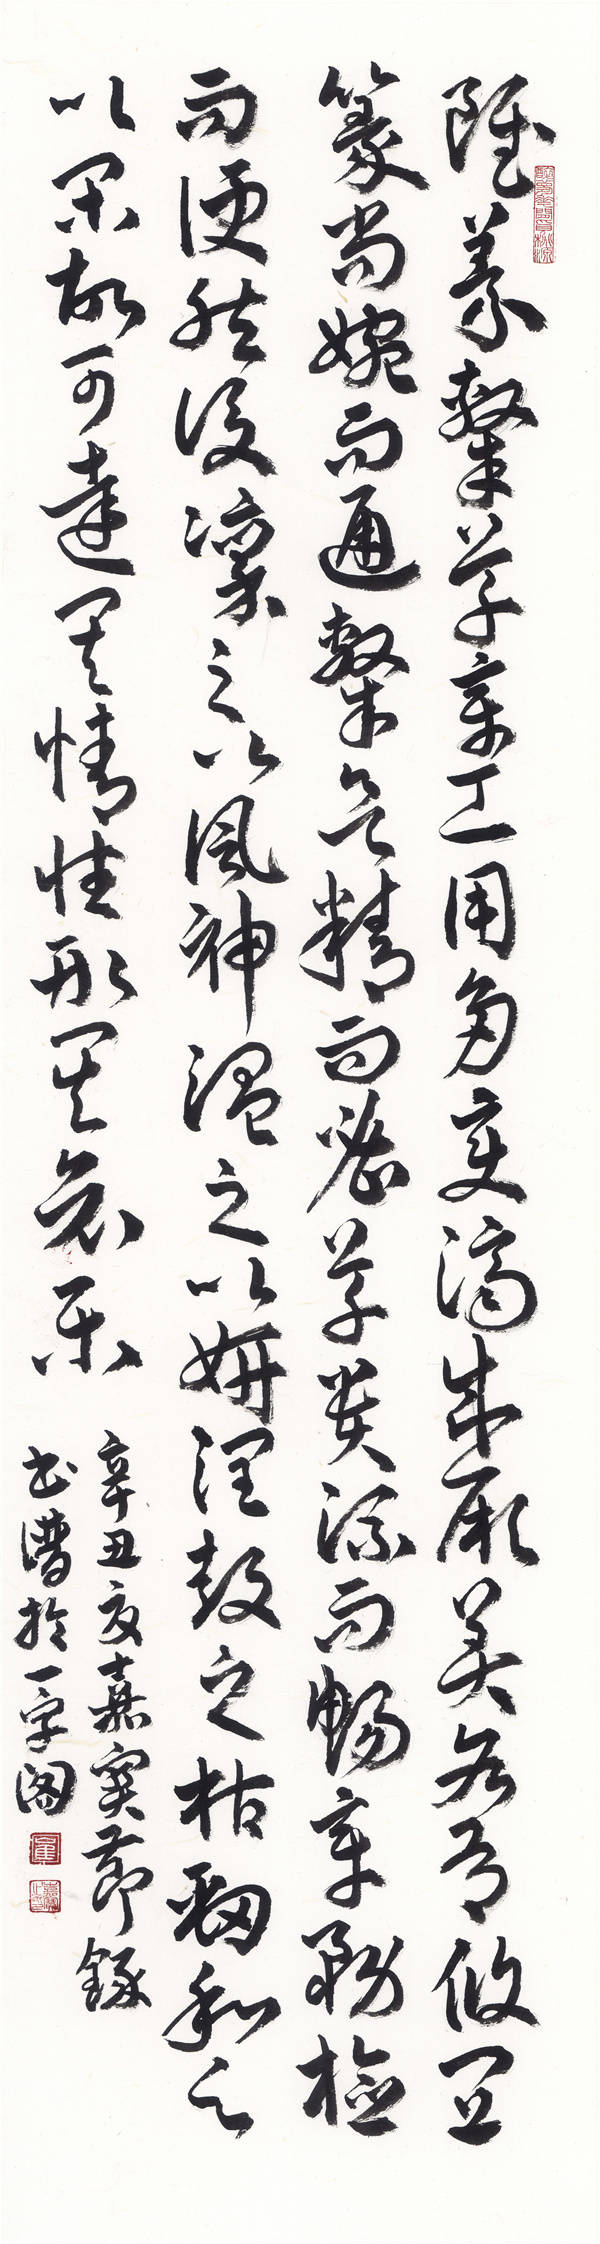 雖篆隸草章工用多變濟成厥美各有攸宜
篆尚婉而通隸欲精而密草貴流而暢章務檢
而便然後凜之以風神溫之以妍潤鼓之枯勁和之
以閑故可達其情性形其哀樂
辛丑夏嘉實節錄
書譜於一字閣